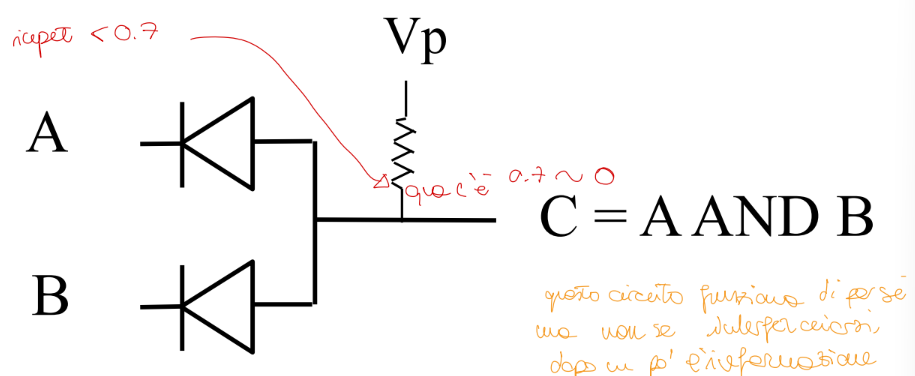 Vp
<0.7
A
qua c'è 0.7 ~ 0
C = A AND B
B
questo circuito funziona di per sé
ma non se interfacciarsi,
dopo un po' è informazione